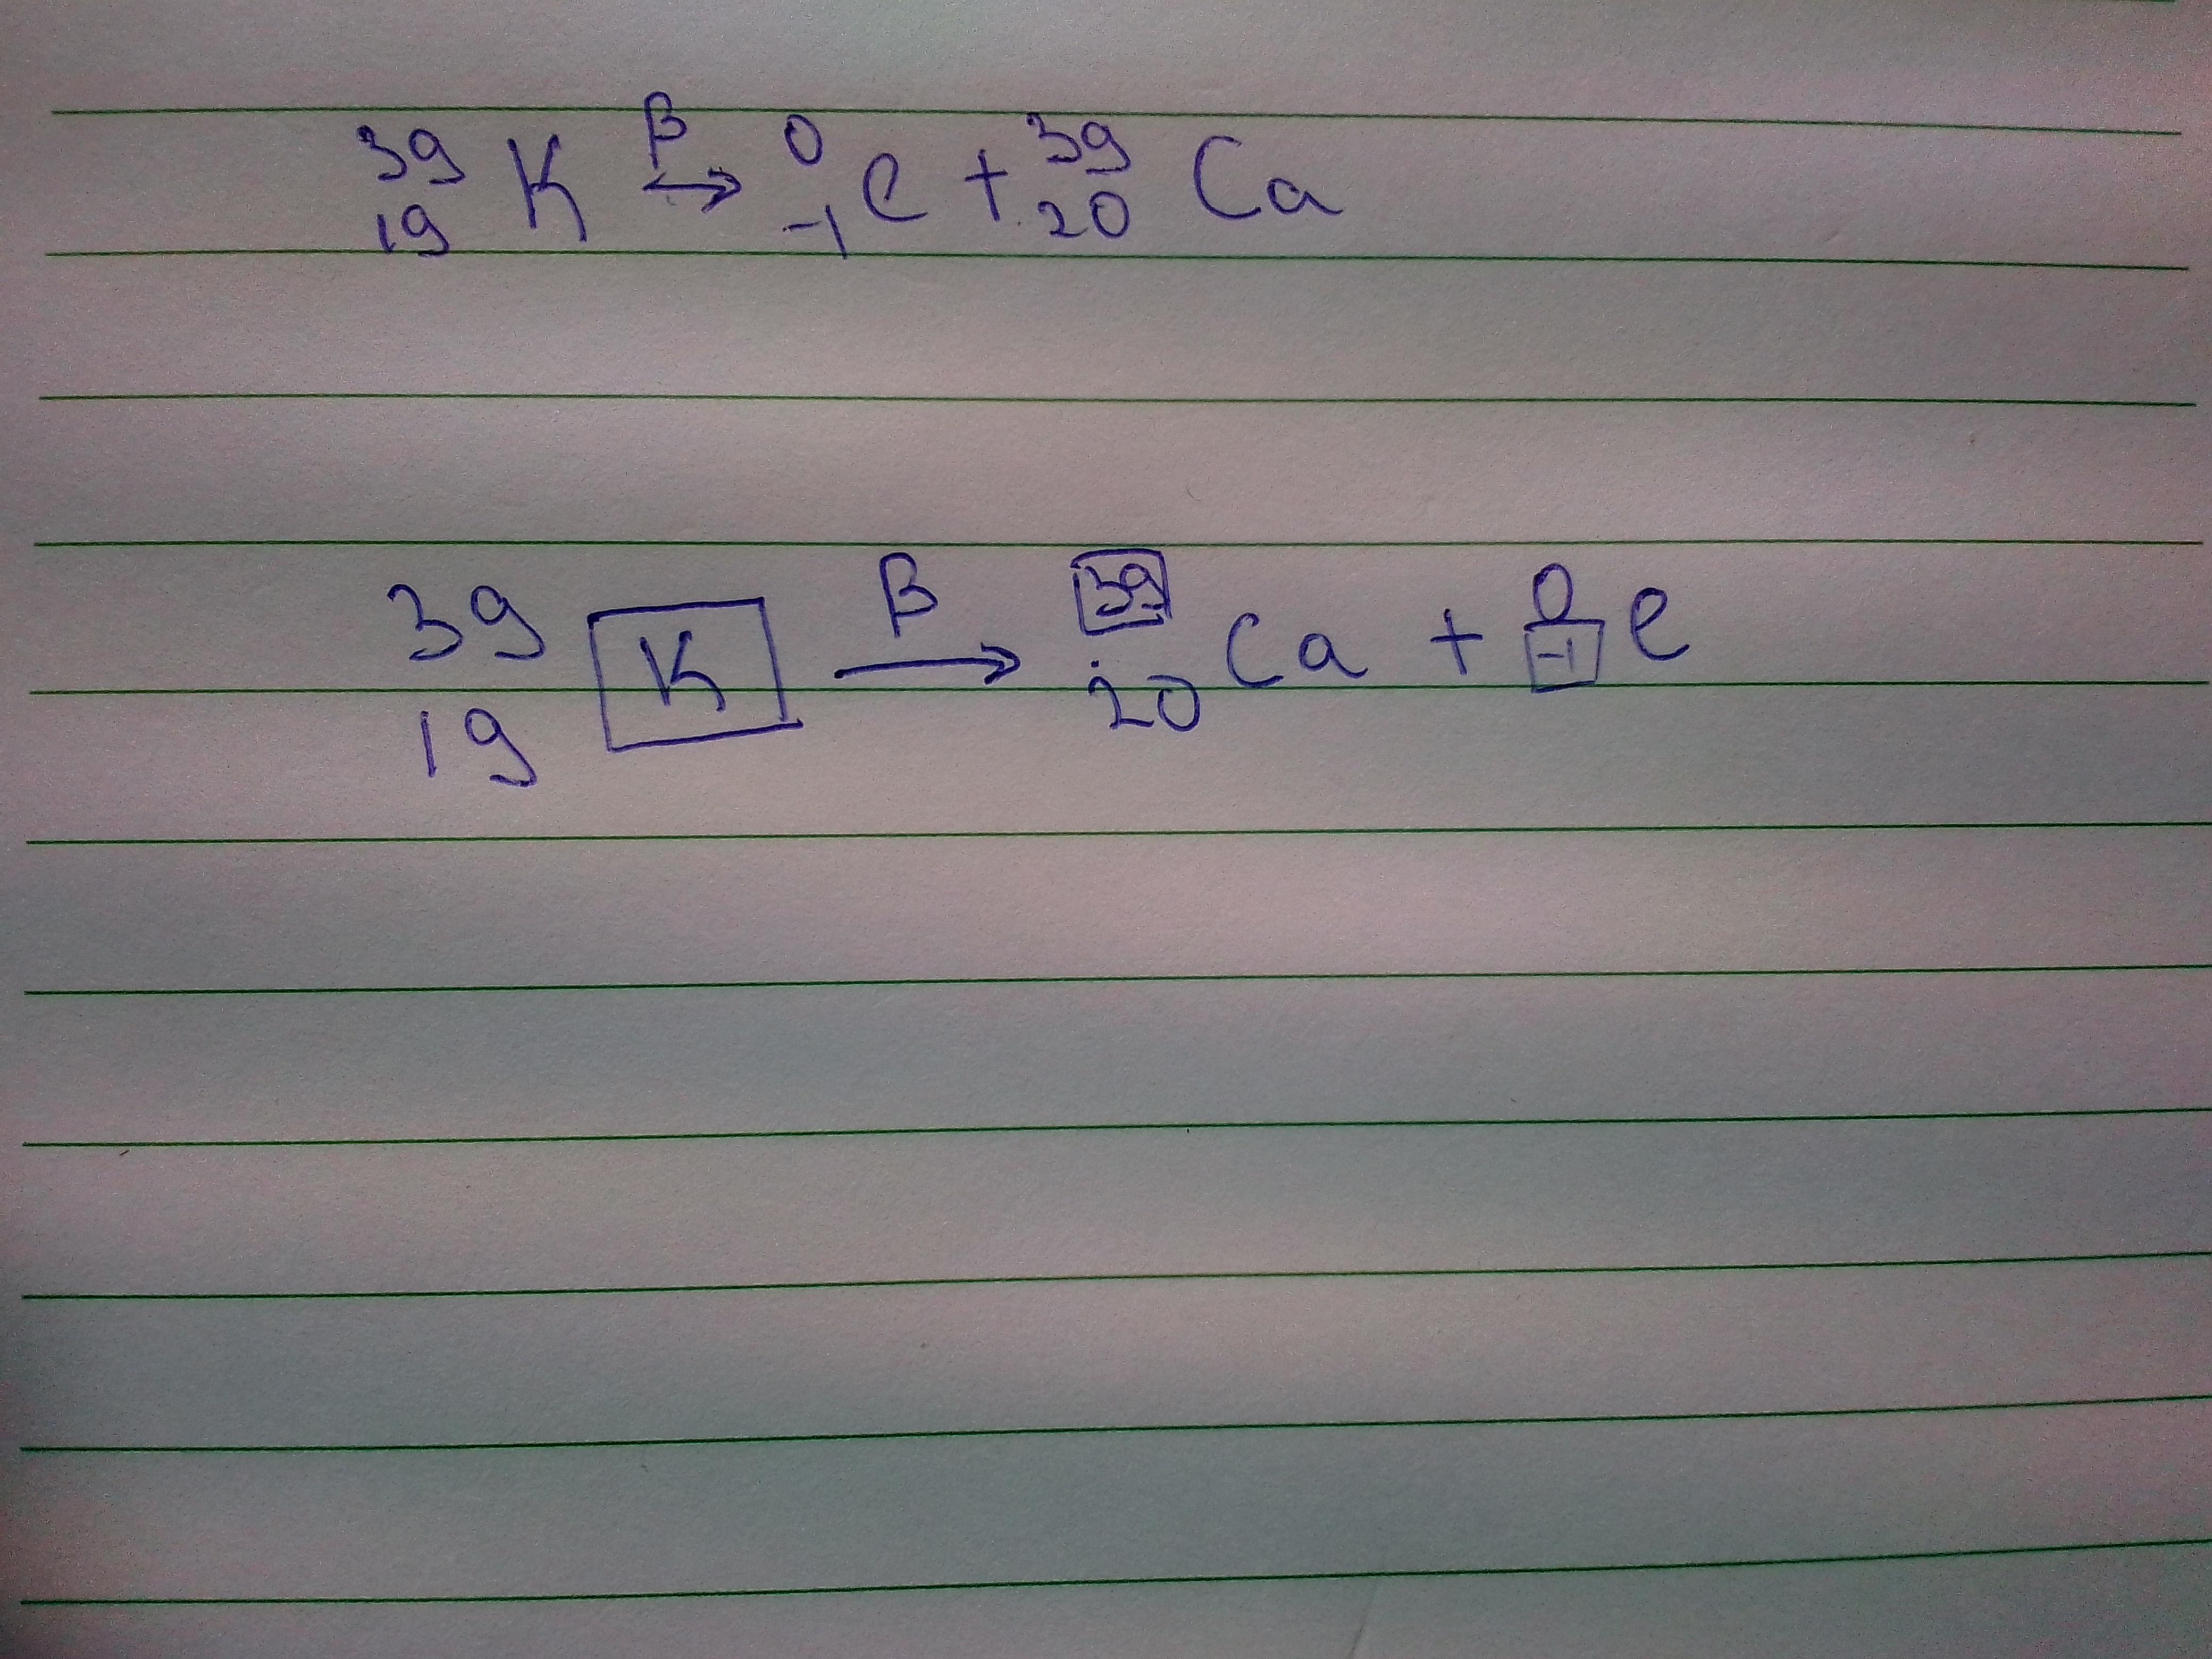 ³⁹₁₉K →^β ⁰₋₁e + ³⁹₂₀Ca
³⁹₁₉K →^β ³⁹₂₀Ca + ⁰₋₁e